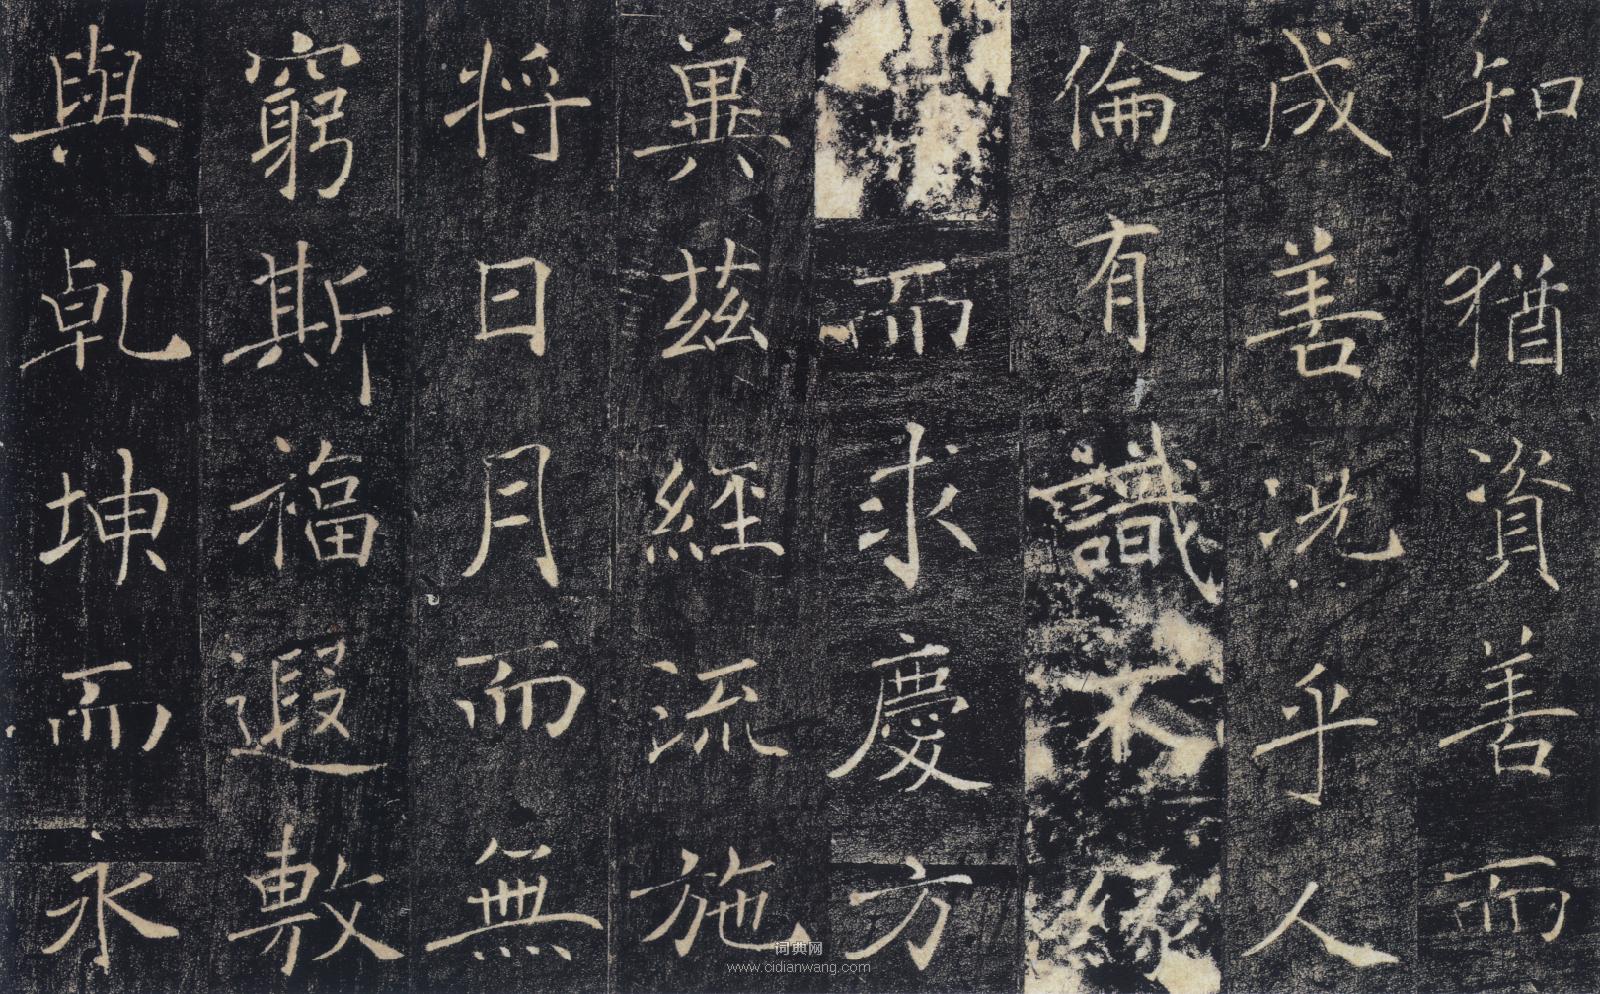 知猶資善而
成善况乎人
倫有識不緣
而求慶方
冀茲經流施
将日月而無
窮斯福遐敷
與乹坤而永
词典网
www.cidianwang.com